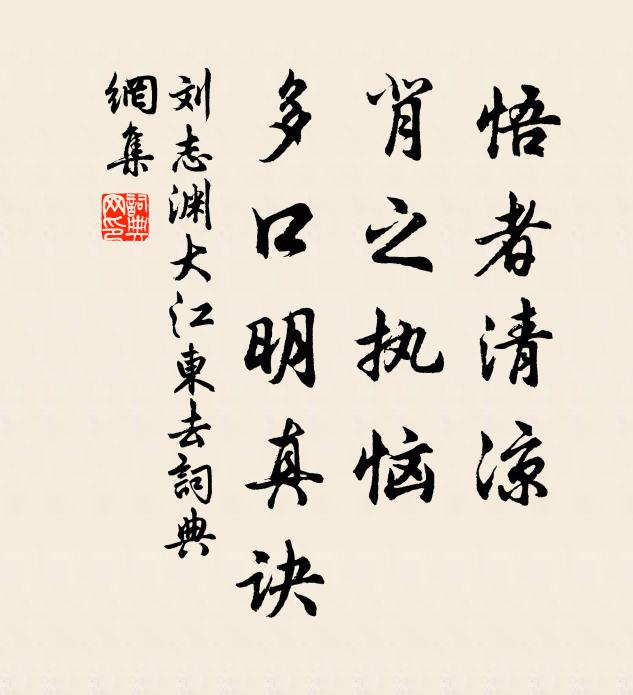 悟者清凉
背之执恼
多口明真诀
刘志渊大江東去詞典
網集
詞典网印